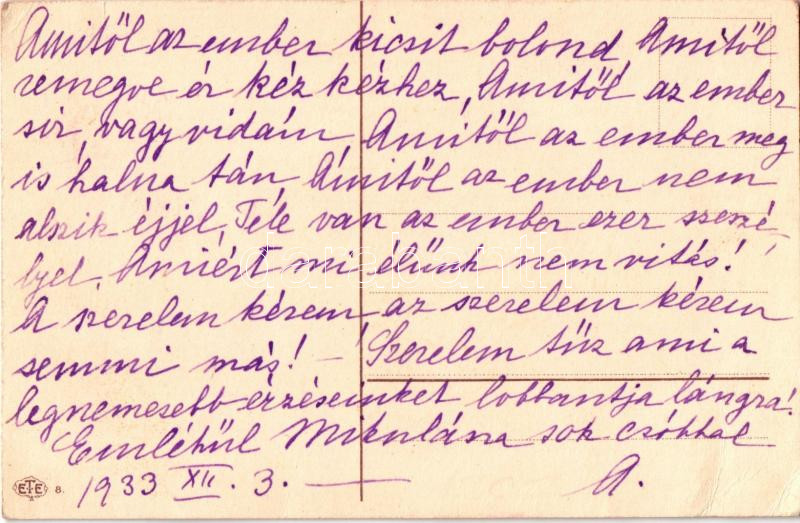 Amitől az ember kicsit bolond, Amitől
remegve ér kéz kézhez, Amitől az ember
sir, vagy vidám, Amitől az ember meg
is halna tán, Amitől az ember nem
alszik éjjel, Tele van az ember ezer szeszé-
lyel, Amiért mi élünk nem vitás!
A szerelem kérem az szerelem kérem
semmi más! – Szerelem tüz ami a
legnemesebb érzéseinket lobbantja lángra!
Emlékül Mikulásra sok csókkal
1933 XII. 3. — A.
ETE 8.
darabanth